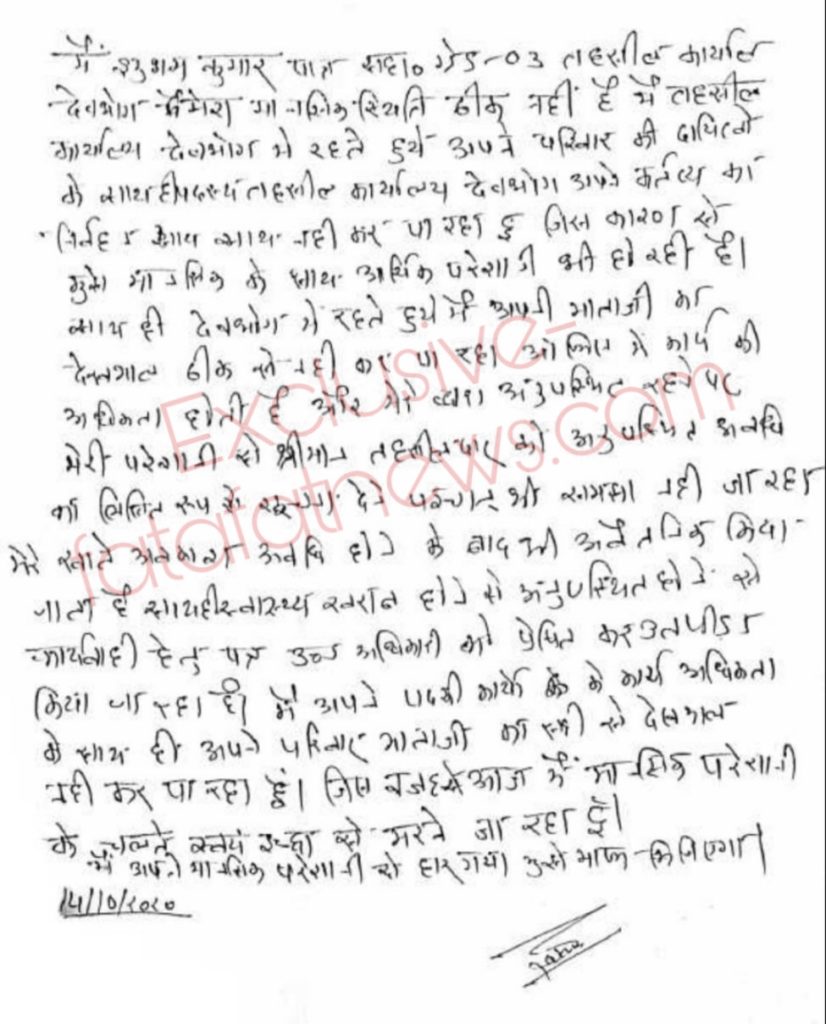 मैं शुभम कुमार पात्र सहा० ग्रेड-03 तहसील कार्यालय
देवभोग मेरा मानसिक स्थिति ठीक नहीं है मैं तहसील
कार्यालय देवभोग मे रहते हुये अपने परिवार की दायित्वो
के साथ ही पदस्थ तहसील कार्यालय देवभोग अपने कर्तव्य का
निर्वहन साथ नही कर पा रहा हु जिस कारण से
मुझे मानसिक के साथ आर्थिक परेशानी भी हो रही है।
साथ ही देवभोग में रहते हुये मैं अपनी माताजी का
देखभाल ठीक से नही कर पा रहा ऑफिस में कार्य की
अधिकता होती है और मेरे द्वारा अनुपस्थित रहने पर
मेरी परेशानी को श्रीमान तहसीलदार को अनुपस्थित अवधि
का लिखित रूप से सूचना देने पश्चात् भी समझा नही जा रहा
मेरे खाते अवकाश अवधि होने के बाद भी अवैतनिक किया
जाता है साथ ही स्वास्थ्य खराब होने से अनुपस्थित होने से
कार्यवाही हेतु पत्र उच्च अधिकारी को प्रेषित कर उतपीडन
किया जा रहा है। मैं अपने पद की कार्य के कार्य अधिकता
के साथ ही अपने परिवार माताजी का सही से देखभाल
नही कर पा रहा हूं। जिस वजह से आज मैं मानसिक परेशानी
के चलते स्वयं इच्छा से मरने जा रहा हूँ।
मैं अपने मानसिक परेशानी से हार गया मुझे माफ किजिएगा
14/10/2020
Exclusive-
fatafatnews.com